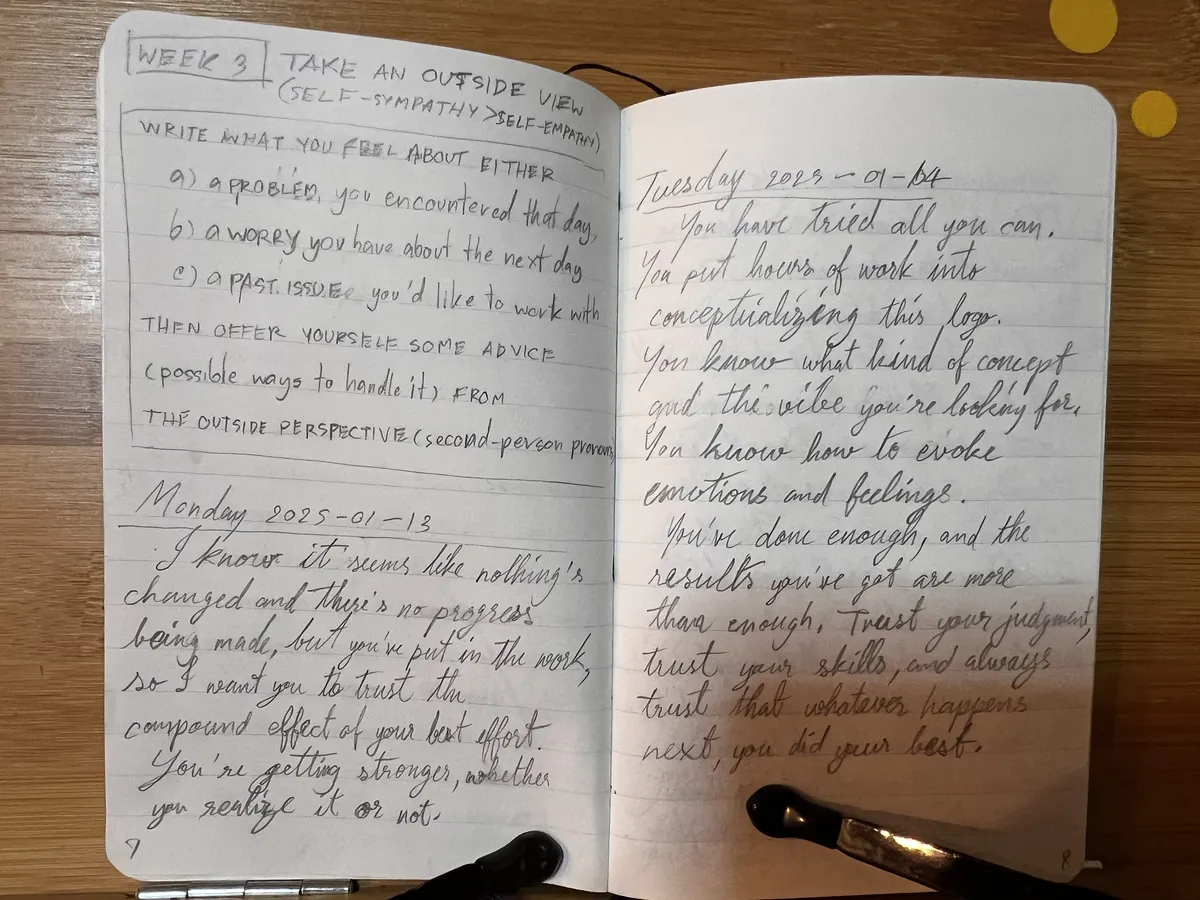 WEEK 3 TAKE AN OUTSIDE VIEW
(SELF-SYMPATHY > SELF-EMPATHY)
WRITE WHAT YOU FEEL ABOUT EITHER
a) a PROBLEM, you encountered that day,
b) a WORRY you have about the next day
c) a PAST ISSUE you'd like to work with
THEN OFFER YOURSELF SOME ADVICE
(possible ways to handle it) FROM
THE OUTSIDE PERSPECTIVE (second-person pronouns)
Monday 2025-01-13
I know it seems like nothing's
changed and there's no progress
being made, but you've put in the work,
so I want you to trust the
compound effect of your best effort.
You're getting stronger, whether
you realize it or not.
7
Tuesday 2025-01-14
You have tried all you can.
You put hours of work into
conceptualizing this logo.
You know what kind of concept
and the vibe you're looking for.
You know how to evoke
emotions and feelings.
You've done enough, and the
results you've got are more
than enough. Trust your judgment,
trust your skills, and always
trust that whatever happens
next, you did your best.
8